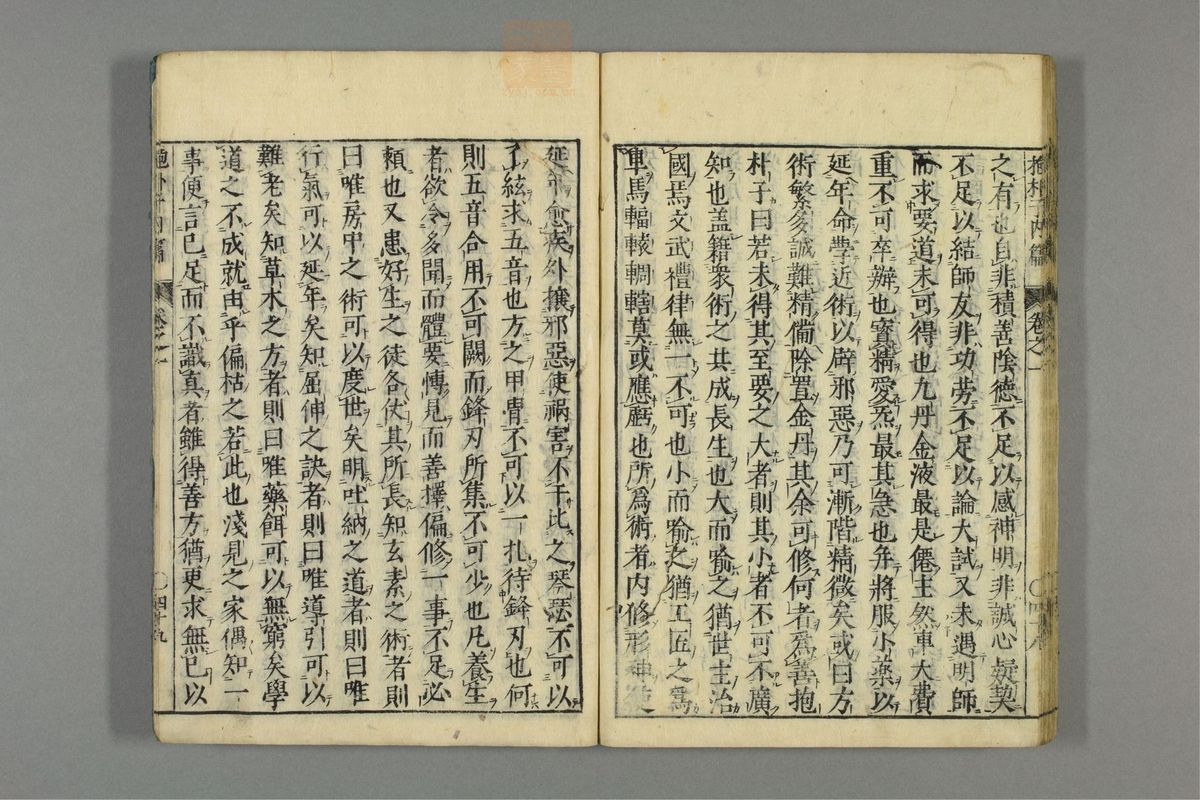 抱朴子内篇 卷之一
之有也自非積善陰德不足以感神明非誠心疑契
不足以結師友非功劳不足以論大試又未遇明師
而求要道未可得也九丹金液最是僊主然事大費
重不可卒辦也寳精愛炁最其急也并將服小藥以
延年命學近術以辟邪惡乃可漸階精微矣或曰方
術繁多誠難精備除置金丹其余可修何者爲善抱
朴子曰若未得其至要之大者則其小者不可不廣
知也盖籍衆術之共成長生也大而喻之猶世主治
國焉文武禮律無一不可也小而喻之猶工匠之爲
車馬輻轅輞轄莫或應虧也所爲術者内修形神使
延命愈疾外攘邪惡使禍害不干比之琴瑟不可以
孑絃求五音也方之甲冑不可以一扎待鋒刃也何
則五音合用不可闕而鋒刃所集不可少也凡養生
者欲令多聞而體要博見而善擇偏修一事不足必
頼也又患好生之徒各仗其所長知玄素之術者則
曰唯房中之術可以度世矣明吐納之道者則曰唯
行氣可以延年矣知屈伸之訣者則曰唯導引可以
難老矣知草木之方者則曰唯藥餌可以無窮矣學
道之不成就由乎偏枯之若此也淺見之家偶知一
事便言已足而不識真者雖得善方猶更求無已以
抱朴子内篇 卷之一 四十九